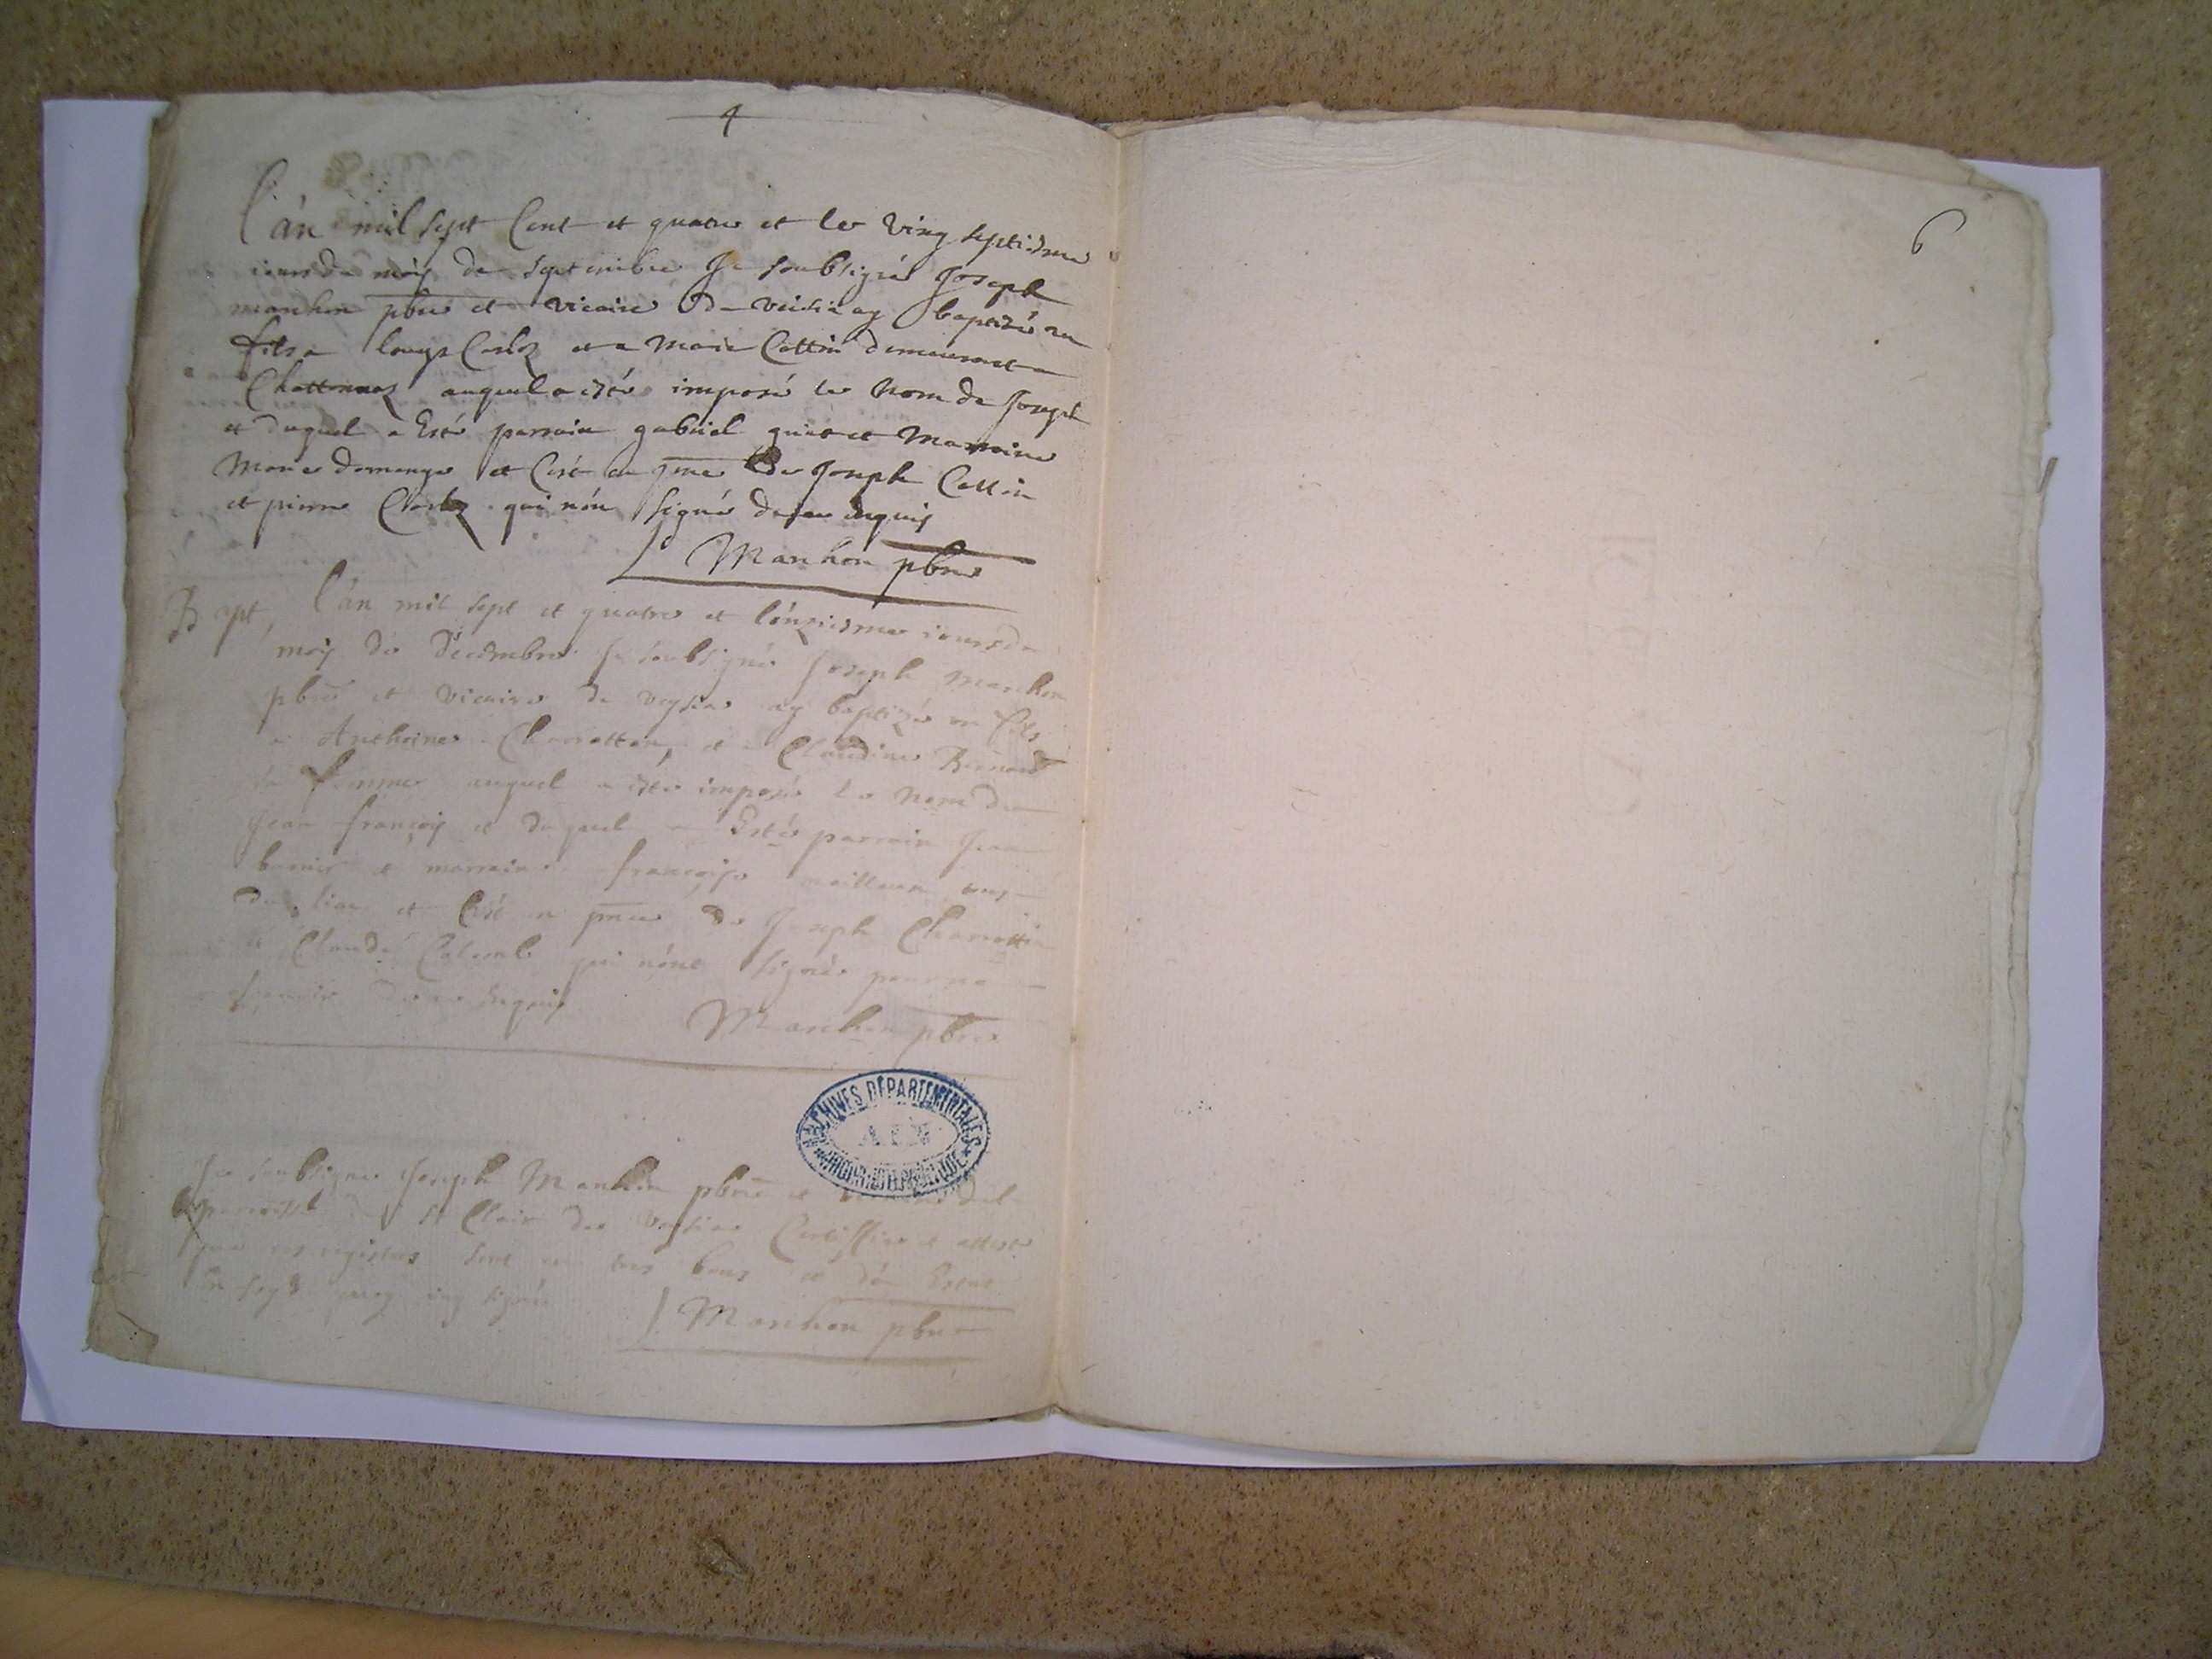 4
L'án mil sept Cent et quatre et le Ving septiesme
iour du moÿs de septembre Je soubsigné Joseph
manhon pbre et vicaire de veisia ay baptizé un
fils a louys Carloz et a Marie Cattin demeurant a
Chattonnaz auquel a esté imposé le Nom de Joseph
et duquel a Esté parrain gabriel et Marraine
Marie domenge et Cest en pnce de Joseph Cattin
et pierre qui nón signé de ce enquis
Manhon pbre
Bapt. L'án mil sept et quatre et l'ónziesme iour du
moÿs de Décembre Je soubsigné Joseph Manhon
pbre et vicaire de veysia ay baptizé un fils
a Anthoine Charrotton, et a Claudine Bernard
sa femme auquel a esté imposé le nom de
Jean françois et duquel a Esté parrain Jean
et marraine françoise tous
du lieu et Cest en pnce de Joseph Charrottin
et Claude qui nónt signé pour ne
de ce enquis
Manhon pbre
ARCHIVES DÉPARTEMENTALES
AIN
Je soubsigné Joseph Manhon pbre et de la
parroisse de St Clair de veysia Certiffie et atteste
que ces registres sont en tres bons et
En foy de quoy iay signé
Manhon pbre
6